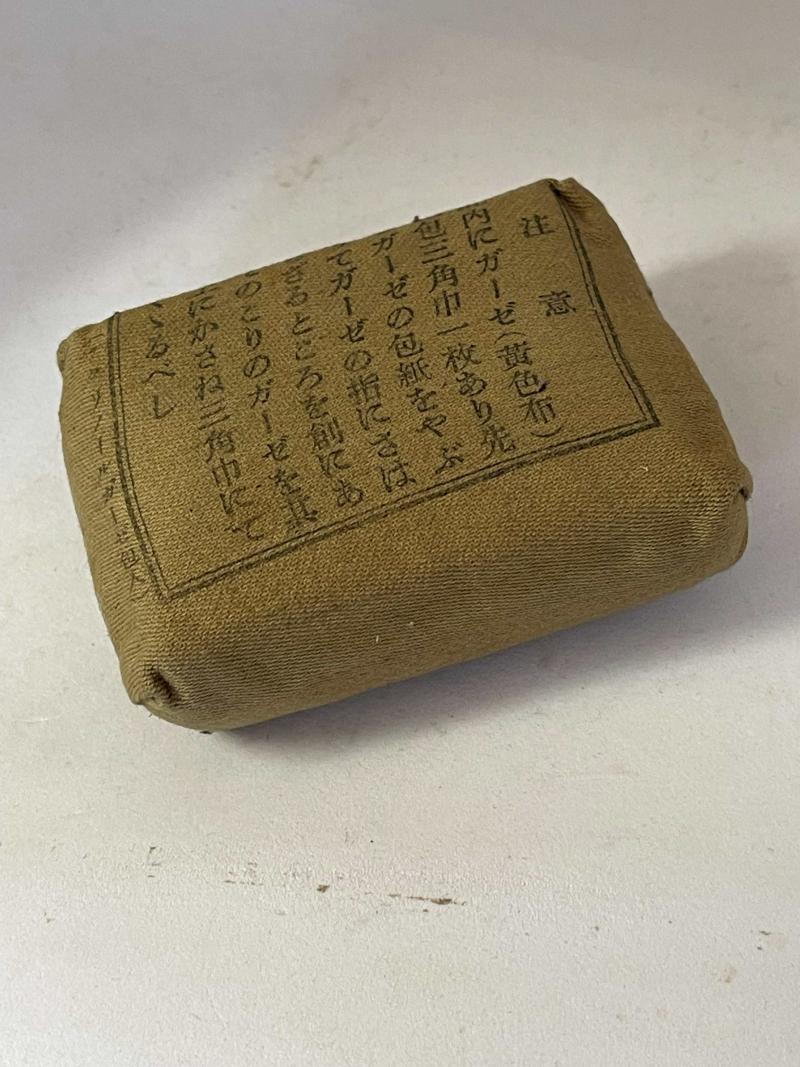 注意
内にガーゼ(黄色布)
包三角巾一枚あり先
ガーゼの包紙をやぶ
てガーゼの指にさは
ざるところを創にあ
のこりのガーゼを其
にかさね三角巾にて
くゝるべし